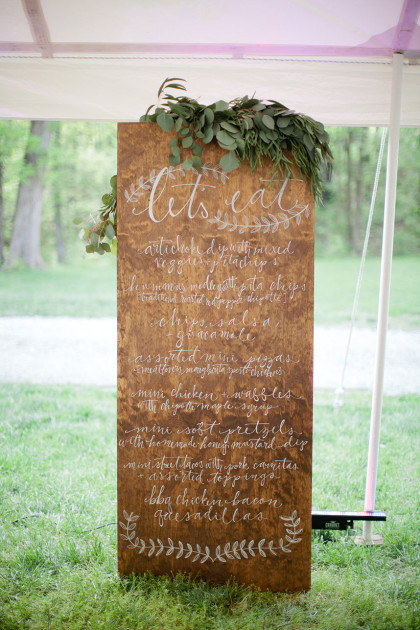 let's eat
artichoke dip with mixed
veggies & pita chips
hummus medley with pita chips
traditional, roasted red pepper, chipotle
chips, salsa
guacamole
assorted mini pizzas
meat lovers, margherita, pesto chicken
mini chicken & waffles
with chipotle maple syrup
mini soft pretzels
with homemade honey mustard dip
mini street tacos with pork carnitas
assorted toppings
bbq chicken bacon
quesadillas